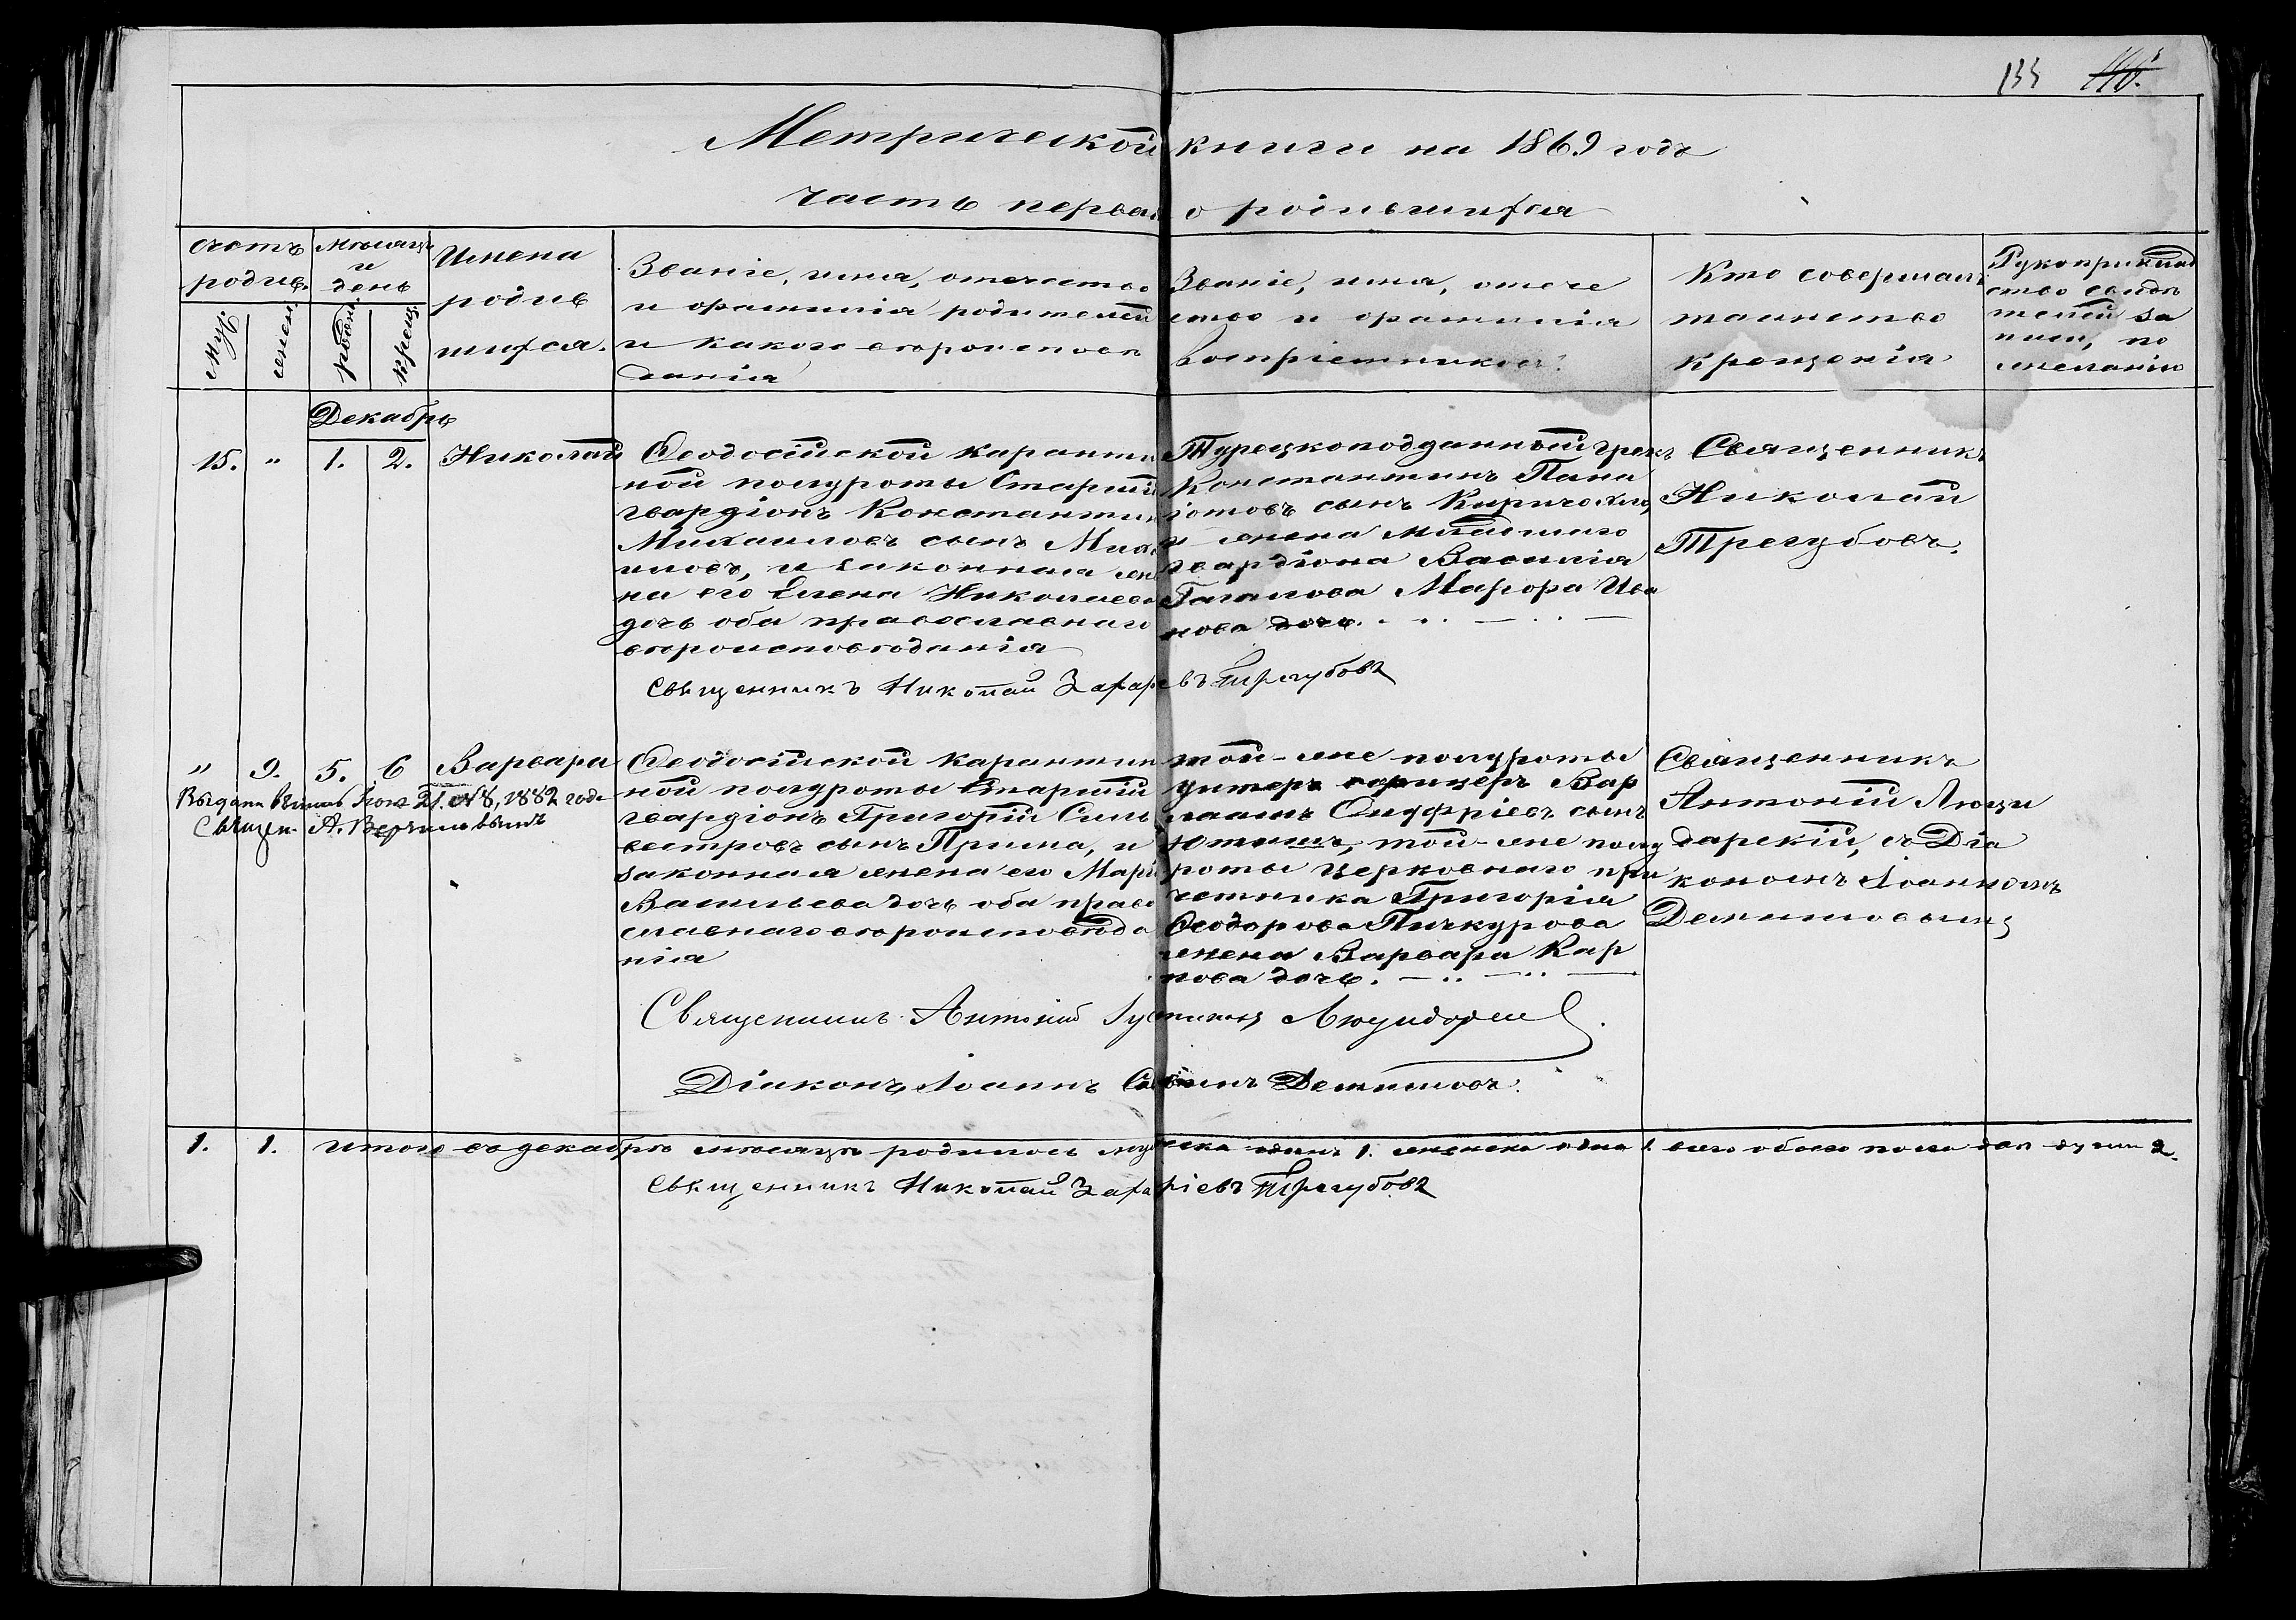 133 
Метрической книги на 1869 годъ
часть первая о родившихся
Счетъ родив.
Муж.
женс.
Мѣсяцъ и день
рожден.
крещ.
Имена родив шихся.
Званіе, имя, отечество
и фамилія родителей
и какого вѣроисповѣ
данія
Званіе, имя, отече
ство и фамилія
воспріемниковъ.
Кто совершалъ
таинство
крещенія
Рукоприклад
ство свидѣ
телей за
писи, по
желанію
Декабрь
15. " 1. 2. Николай
Ѳеодосійской карантин
ной полуроты Старшій
гвардіонъ Константинъ
Михаиловъ сынъ
и законная же
на его Елена Николаева
дочь оба православнаго
вѣроисповѣданія
Турецкоподданный грекъ
Константинъ Пана
іотовъ сынъ
и жена младшаго
гвардіона Василія
Марѳора Ива
нова дочь.
Священникъ
Николай
Трегубовъ.
Священникъ Николай Захаріевъ Трегубовъ
" 9. 5. 6 Варвара
Выдана выпись 21. №8, 1882 года
Священ. А.
Ѳеодосійской карантин
ной полуроты Старшій
гвардіонъ Григорій Силь
вестровъ сынъ Прима, и
законная жена его Марія
Васильева дочь оба право
славнаго вѣроисповѣда
нія
той-же полуроты
унтеръ офицеръ Вар
лаамъ Онуфріевъ сынъ
той-же полу
роты церковнаго при
четника Григорія
Ѳеодорова Пичкурова
жена Варвара Кар
пова дочь.
Священникъ
Антоній Люци
дарскій, съ Діа
кономъ Іоанномъ
Демшиловымъ
Священникъ Антоній Люцидарскій
Діаконъ Іоаннъ Демшиловъ.
1. 1. итого въ декабрѣ мѣсяцѣ родилось мужеска одинъ 1. женска одна 1. всего обоего пола двѣ души 2.
Священникъ Николай Захаріевъ Трегубовъ